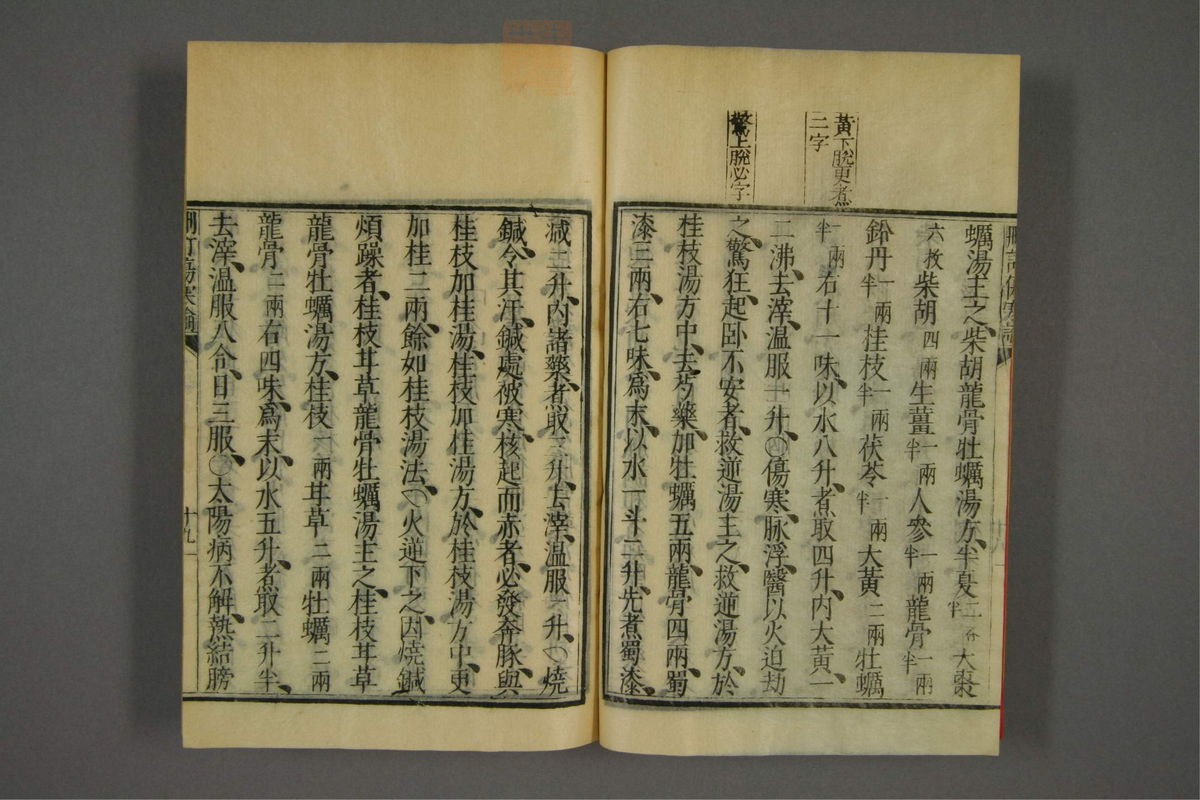 黃下脫更煮
二字
驚上脫必字
蠣湯主之柴胡龍骨牡蠣湯方半夏二合半大棗
六枚柴胡四兩生薑一兩半人參一兩半龍骨一兩半
鉛丹一兩半桂枝一兩半茯苓一兩半大黃二兩牡蠣
一兩半右十一味以水八升煮取四升內大黃一
二沸去滓溫服一升〇傷寒脉浮醫以火迫劫
之驚狂起臥不安者救逆湯主之救逆湯方於
桂枝湯方中去芍藥加牡蠣五兩龍骨四兩蜀
漆三兩右七味爲末以水一斗二升先煮蜀漆
減二升內諸藥煮取三升去滓溫服一升〇燒
鍼令其汗鍼處被寒核起而赤者必發奔豚與
桂枝加桂湯桂枝加桂湯方於桂枝湯方中更
加桂二兩餘如桂枝湯法〇火逆下之因燒鍼
煩躁者桂枝甘草龍骨牡蠣湯主之桂枝甘草
龍骨牡蠣湯方桂枝一兩甘草二兩牡蠣二兩
龍骨二兩右四味爲末以水五升煮取二升半
去滓溫服八合日三服〇太陽病不解熱結膀
刪訂傷寒論
十九